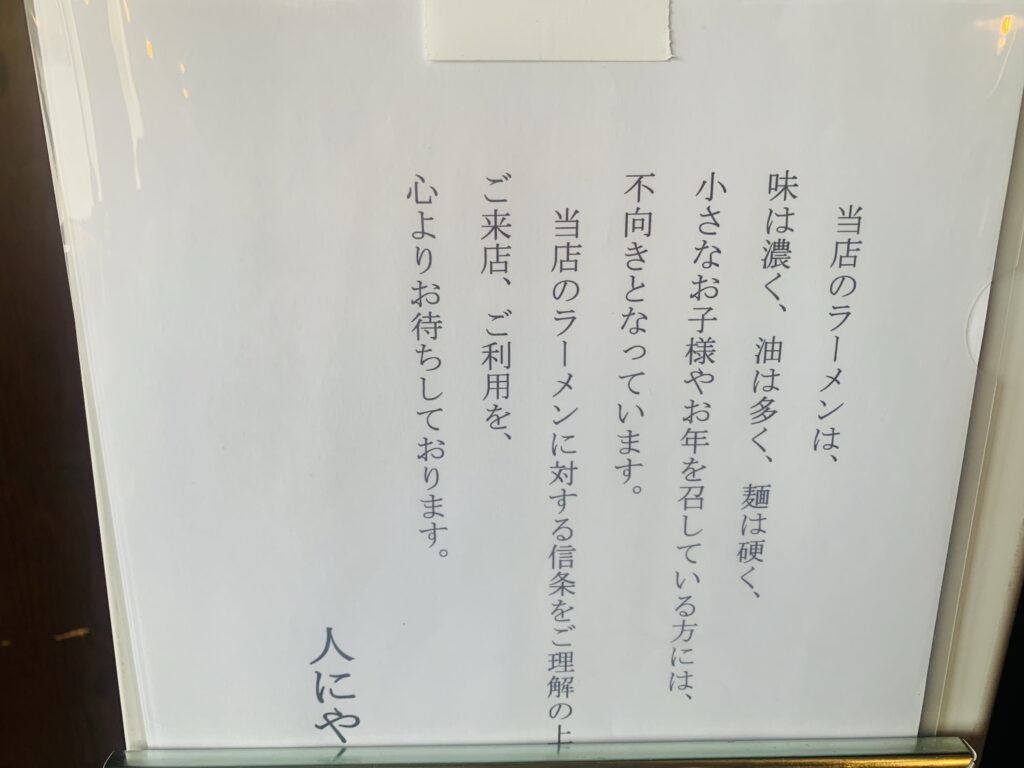 当店のラーメンは、
味は濃く、油は多く、麺は硬く、
小さなお子様やお年を召している方には、
不向きとなっています。
当店のラーメンに対する信条をご理解の上
ご来店、ご利用を、
心よりお待ちしております。
人にや